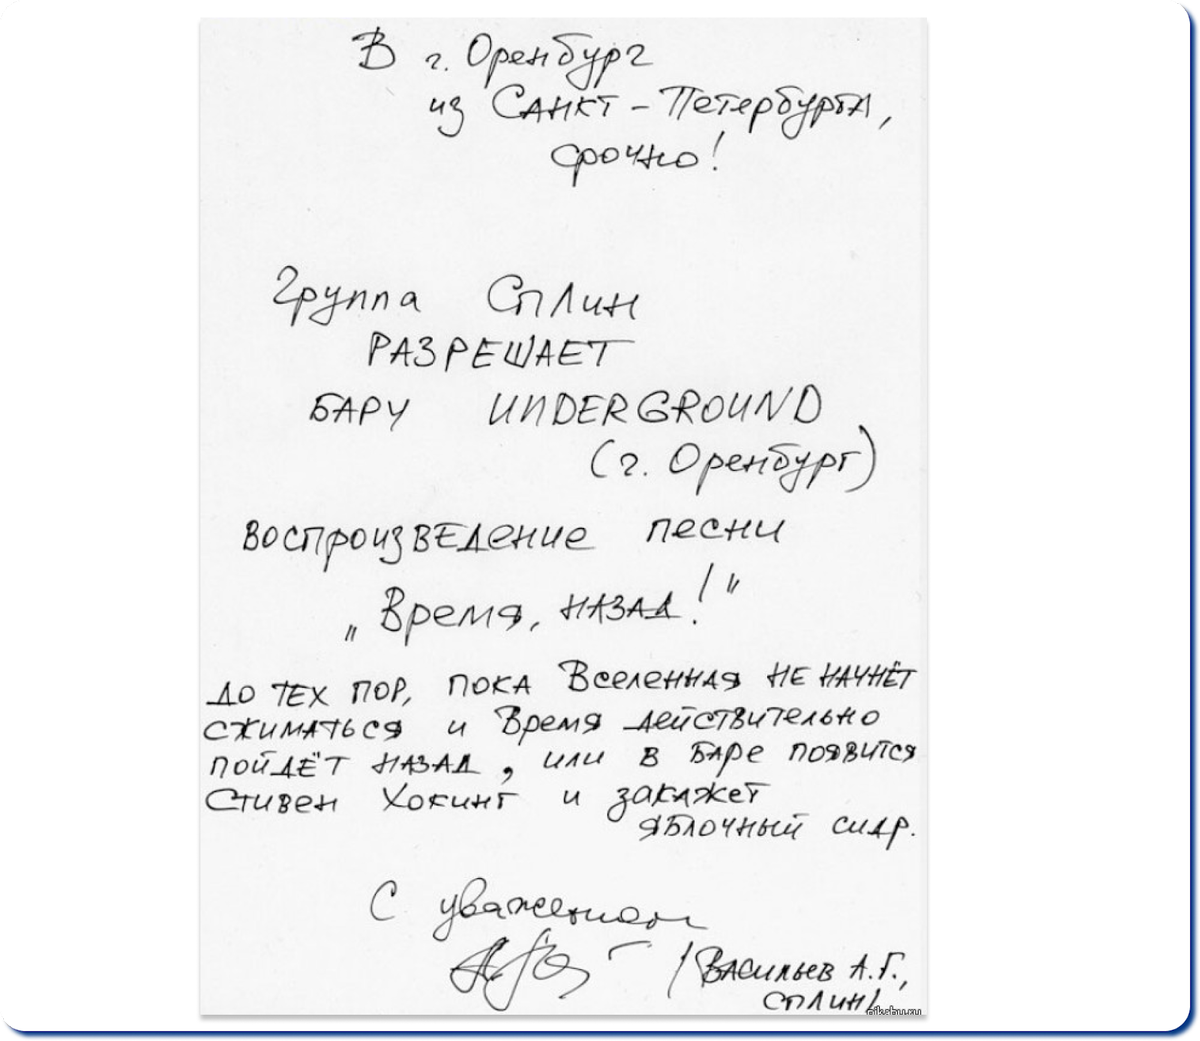 В г. Оренбург
из Санкт-Петербурга,
срочно!
Группа Сплин
РАЗРЕШАЕТ
БАРУ UNDERGROUND
(г. Оренбург)
воспроизведение песни
„Время, назад!"
до тех пор, пока Вселенная не начнёт
сжиматься и Время действительно
пойдёт назад, или в баре появится
Стивен Хокинг и закажет
яблочный сидр.
С уважением
/Васильев А.Г.,
Сплин/
pikabu.ru